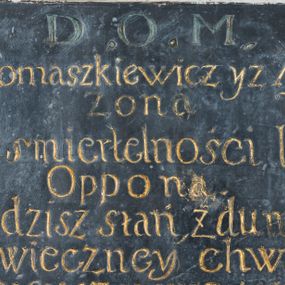 D.O.M.
omaszkiewicz yz
zoną
smiertelności
Oppon
dzisz stań zdum
wieczney chw